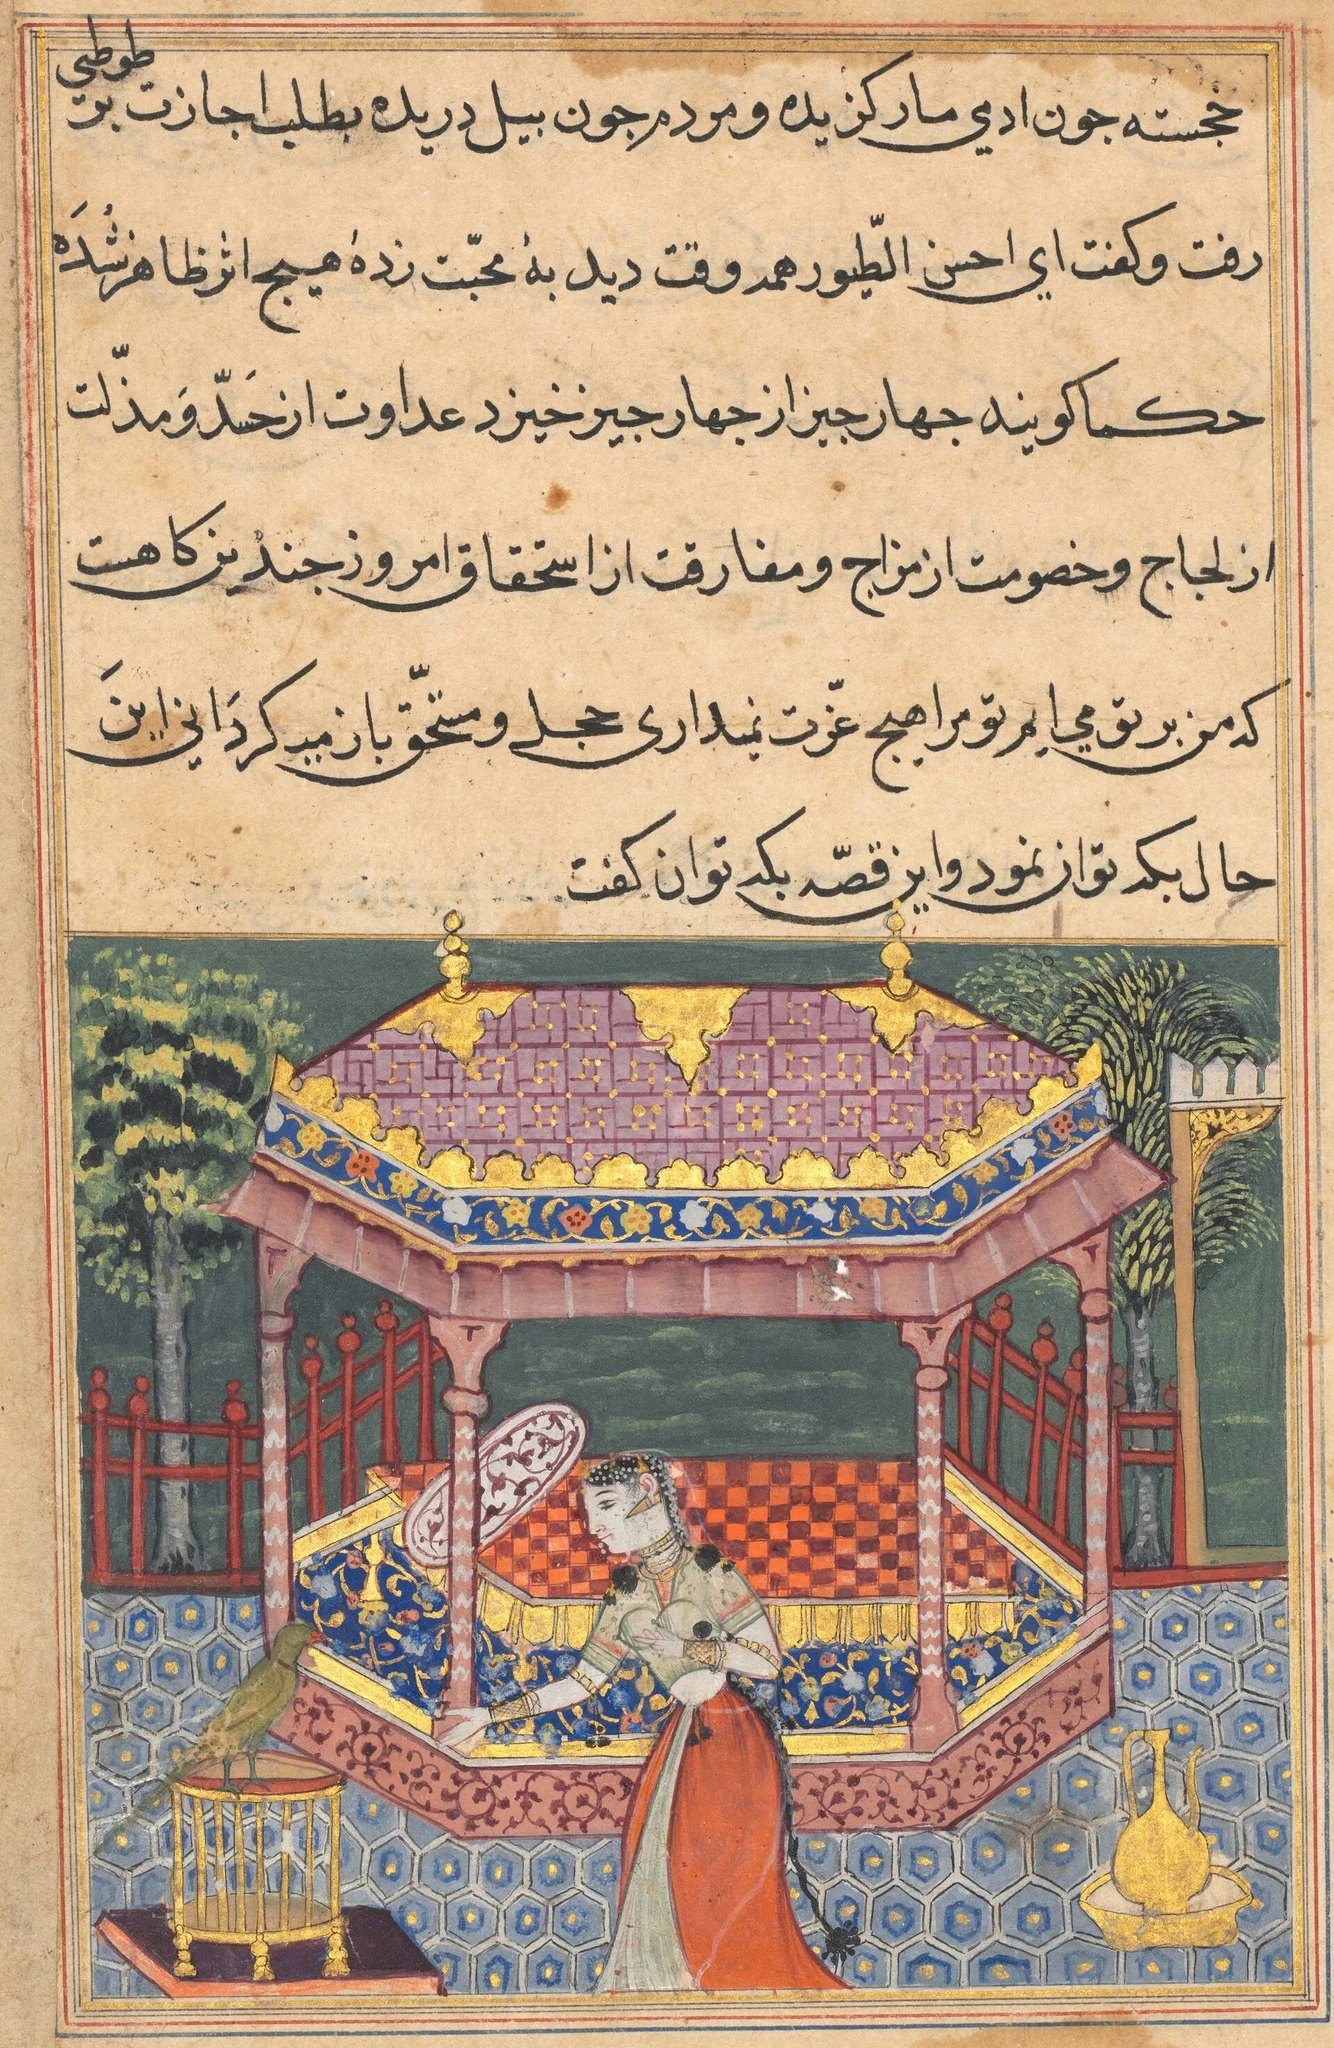 خجسته جون ادمي مار کزیده و مردم جون بیل دریده بطلب اجازت بر طوطي
رفت و کفت اي احسن الطّیور همه وقت دید بهٔ محبّت زدهٔ هیج اثر ظاهر شُدَه
حکما کویند جهار جیز از جهار جیز خیزد عداوت از حَسَدّ وَ مذلّت
از لجاج و خصومت از مزاج و مفارقت از استحقاق امروز جندین کاهست
که من بر تو مي ایم تو مرا هیج عزّت نمیداری خجلے و مستحقّ باز میکردَاني اینَ
حال بکه توان نمود و این قصّه بکه توان کفت